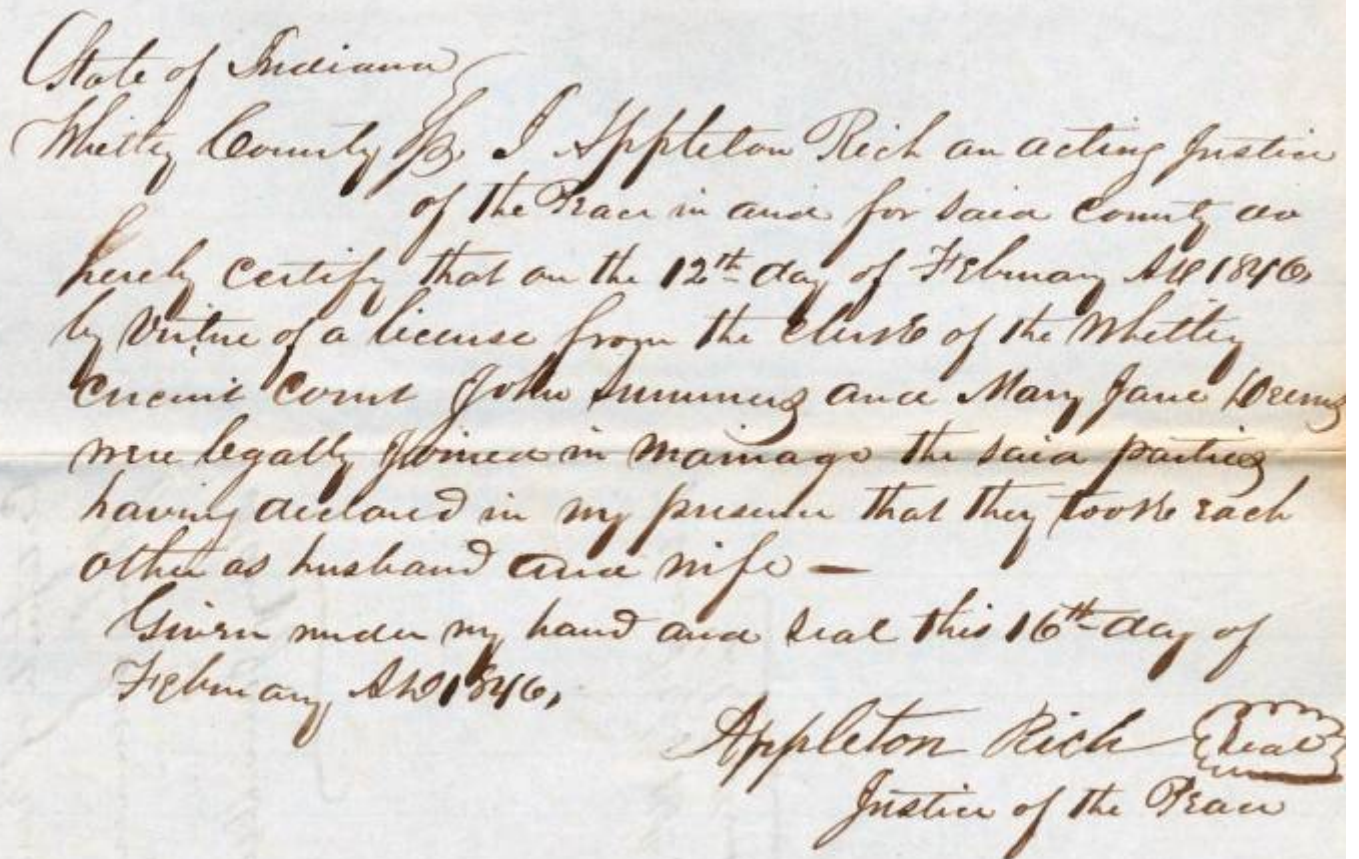 State of Indiana
Whitley County Ss. I Appleton Rich an acting Justice
of the Peace in and for said county do
hereby certify that on the 12th day of February AD 1846
by virtue of a license from the clerk of the Whitley
circuit court John Summers and Mary Jane
were legally Joined in marriage the said parties
having declared in my presence that they took each
other as husband and wife —
Given under my hand and seal this 16th day of
February AD 1846.
Appleton Rich Seal
Justice of the Peace